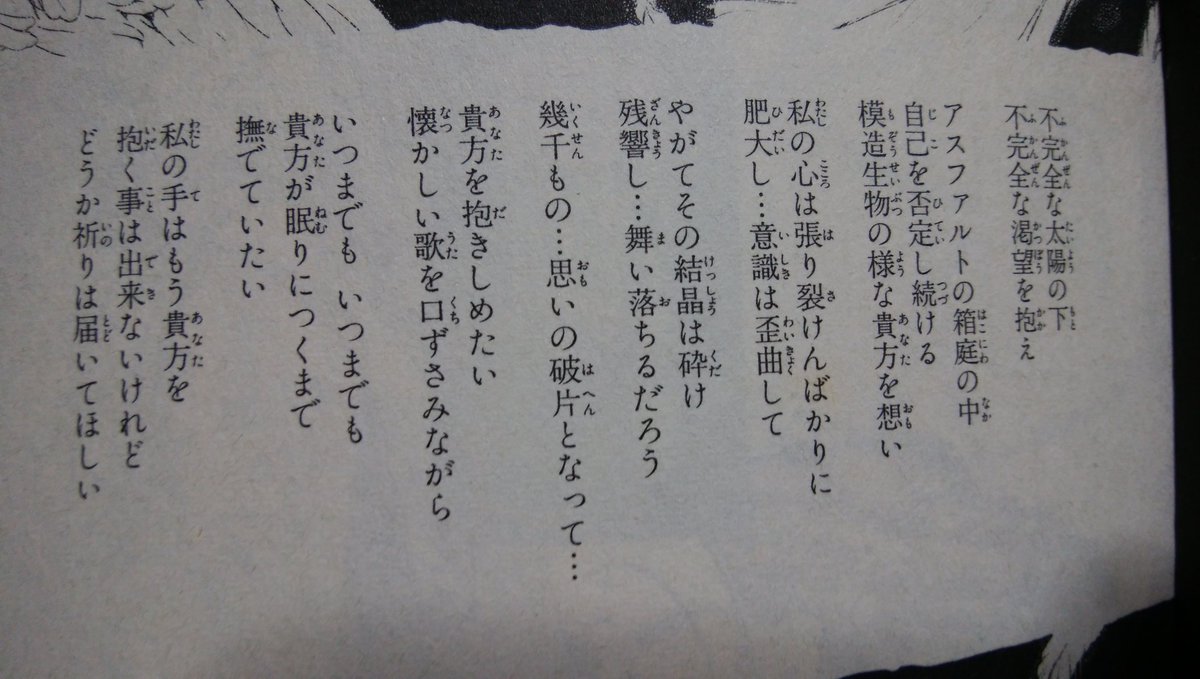 不完全な太陽の下
不完全な渇望を抱え
アスファルトの箱庭の中
自己を否定し続ける
模造生物の様な貴方を想い
私の心は張り裂けんばかりに
肥大し…意識は歪曲して
やがてその結晶は砕け
残響し…舞い落ちるだろう
幾千もの…思いの破片となって…
貴方を抱きしめたい
懐かしい歌を口ずさみながら
いつまでも いつまでも
貴方が眠りにつくまで
撫でていたい
私の手はもう貴方を
抱く事は出来ないけれど
どうか祈りは届いてほしい